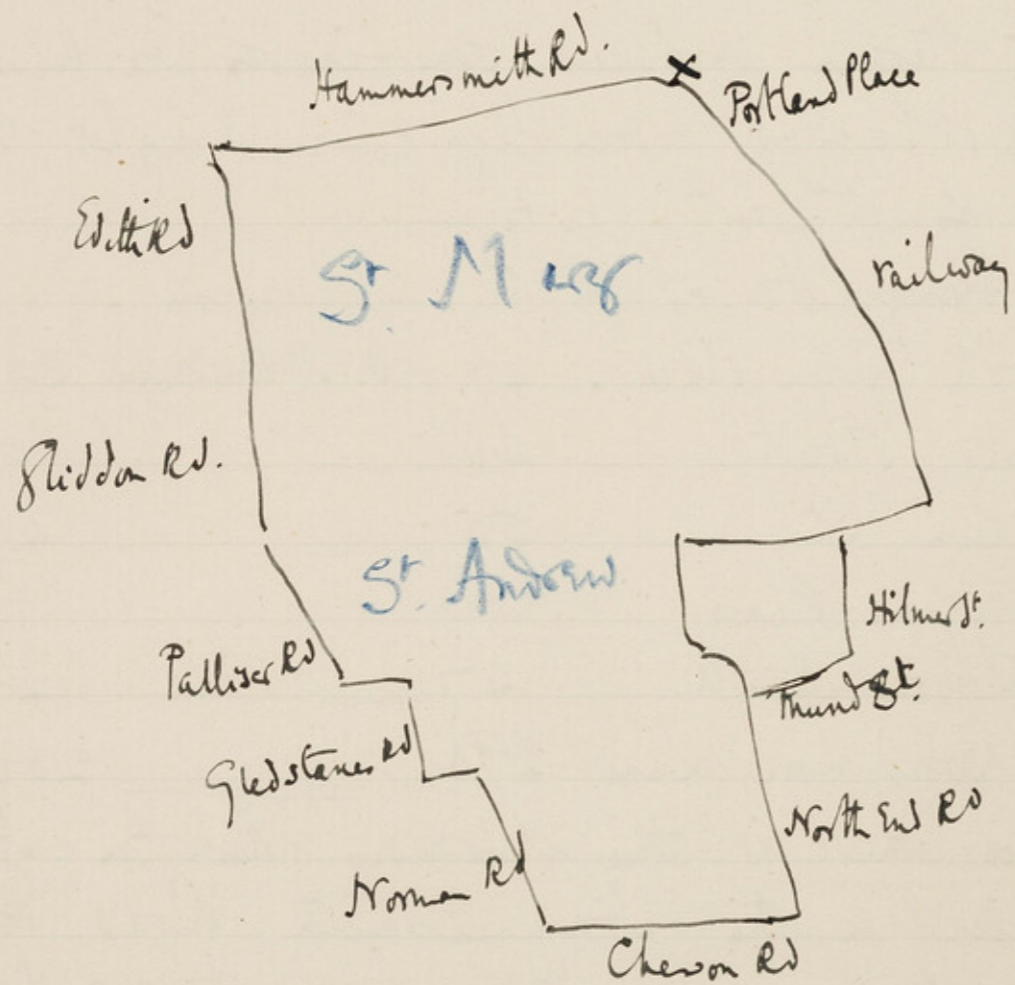 Hammersmith Rd.
Portland Place
Edith Rd
St. Mary
railway
Gliddon Rd.
St. Andrew
Hilmer St.
Palliser Rd
Mund St.
Gledstanes Rd
North End Rd
Norman Rd
Chevon Rd